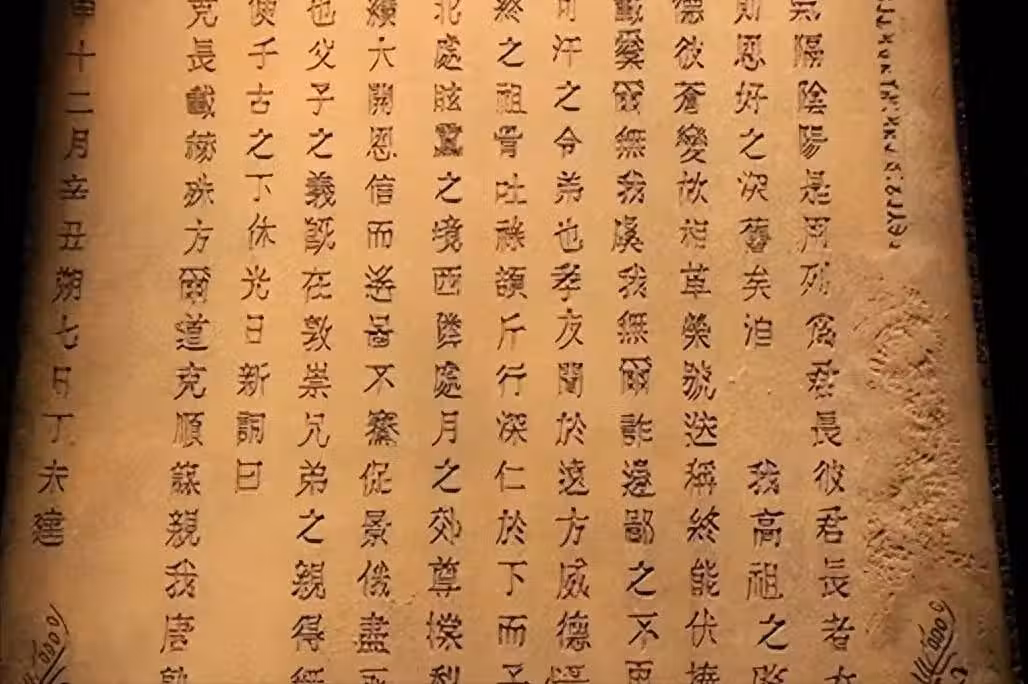 隔陰陽是用列為君長彼君長者
則恩好之深舊矣洎 我高祖之
德彼蒼變故相草榮號迭稱終能伏
載爰爾無我虞我無爾詐邊鄙之不
可汗之令弟也孝友聞於遠方威德
終之祖骨吐祿頡斤行深仁於下而子
北處眩之境西鄰處月之郊尊撐犁
纘大開恩信而遙圖不騫促景俄盡
也父子之義既在敦崇兄弟之親得無
使千古之下休光日新詞曰
克長載赫殊方爾道克順謀親我唐孰
十二月辛丑朔七日丁未建